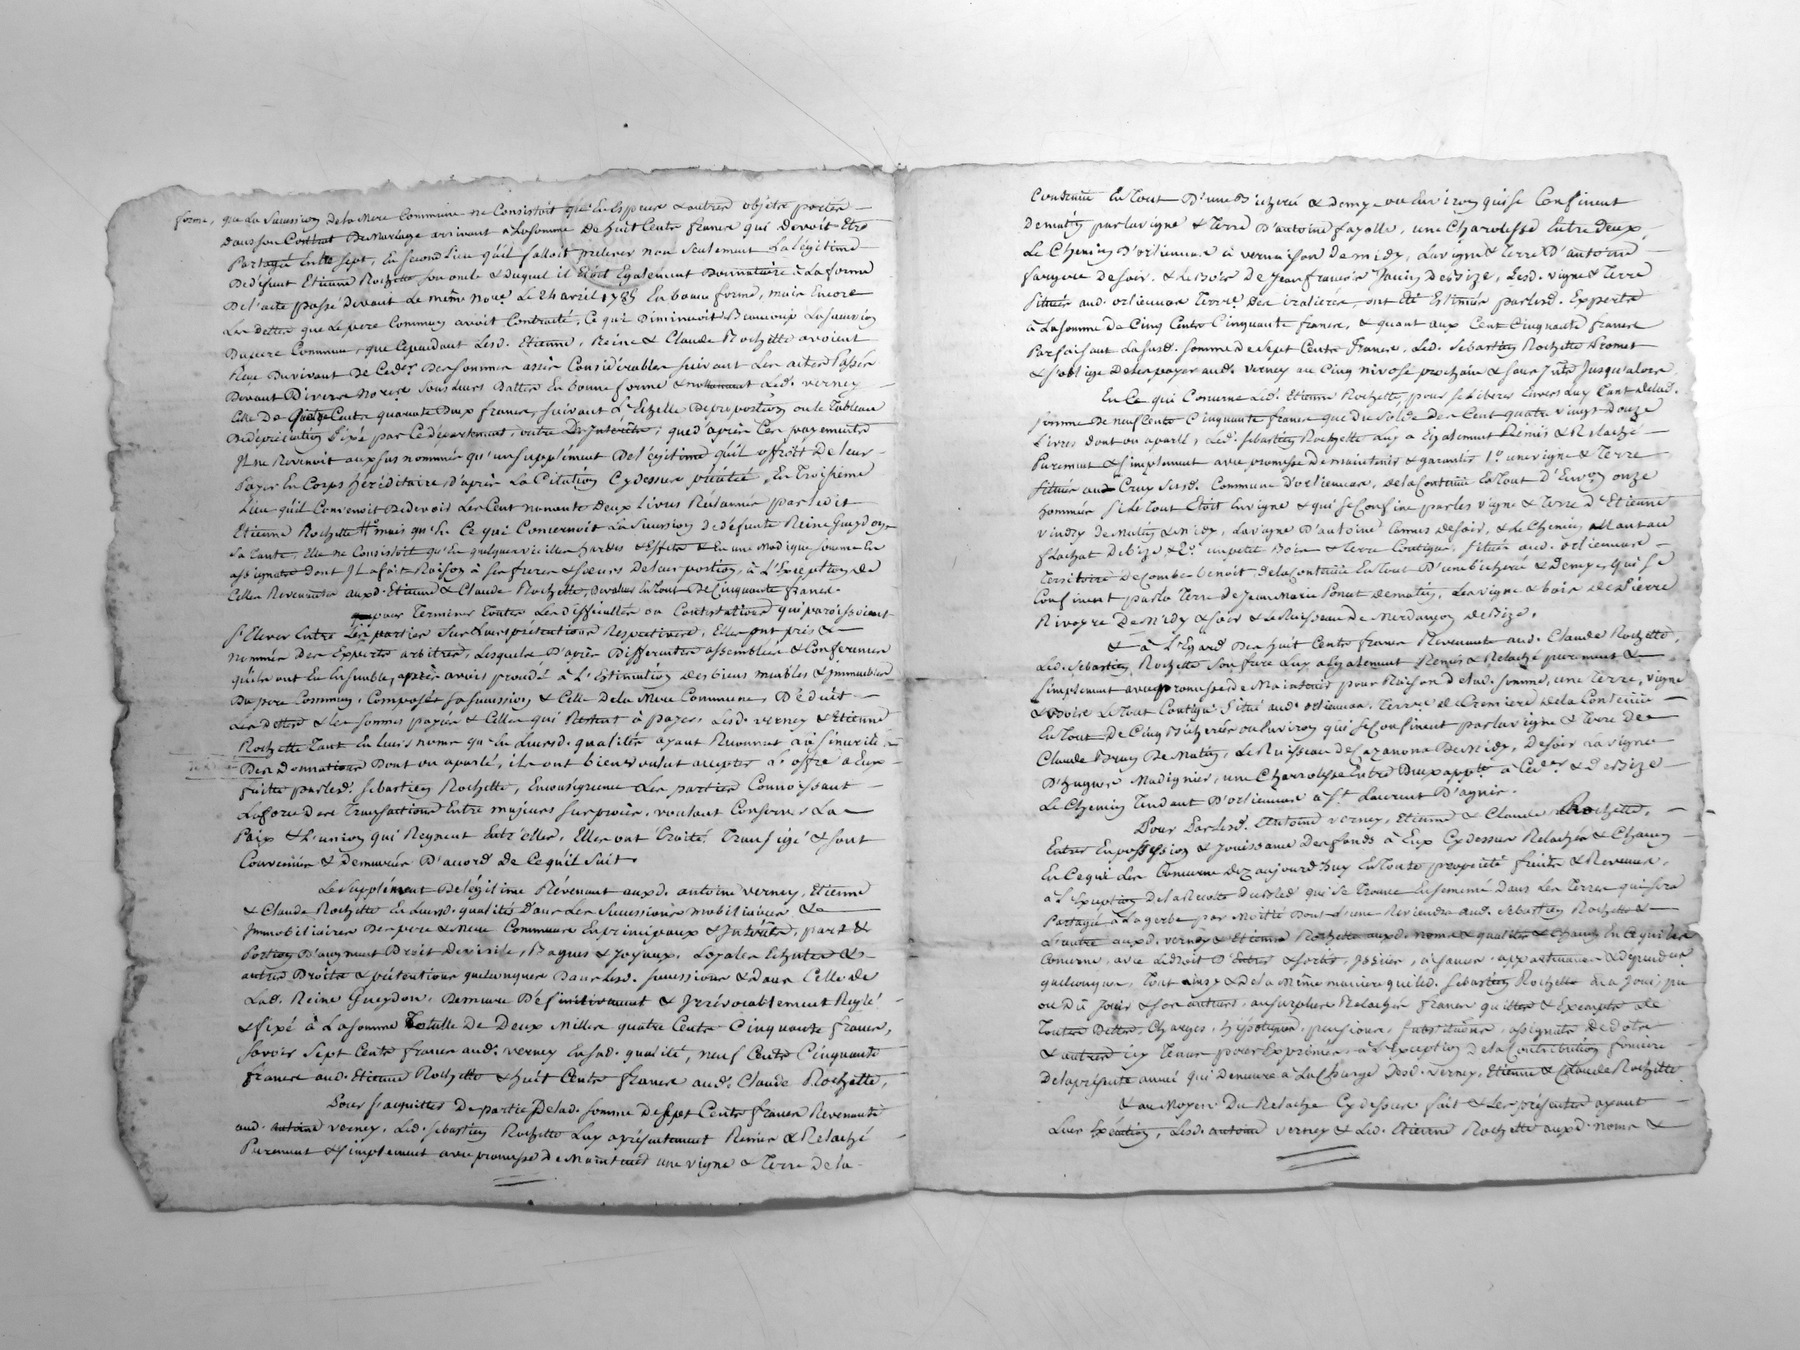 forme, que La Sucession de la Mere Commune ne Consistoit qu'En Especes & autres objets portés
dans son Contrat De Mariage arrivant à La somme de huit Cents francs qui devoit Etre
Partagée Entre Sept, En second Lieu qu'il falloit prelever non Seulement La légitime
De défunt Etienne Rochette son oncle & duquel il Etoit Egalement Donnataire à La forme
De l'acte passé devant Le même Nore Le 24 avril 1785 En bonne forme, mais Encore
Les dettes que Le pere Commun avoit Contracté, Ce qui Diminuoit Beaucoup La sucession
Du pere Commun, que Cependant Lesd. Etienne, Reine & Claude Rochette avoient
Reçu Du vivant de Ced. Des sommes assés Considérables suivant Les actes Passés
Devant Divers Nores Sous Leurs Dattes En bonne forme & nottamment Led. verney
Celle De Quatre Cents quarante Deux francs, suivant L'Echelle De proportion ou le Tableau
De dépréciation fixé par Le département, outre Les Interêts, que d'après Ces payements
Il ne Revenoit aux sus nommés qu'un supplément De légitime qu'il offroit De leur
Payer En Corps héréditaire, d'après La Citation Cy dessus précité, En Troisieme
Lieu qu'il Convenoit Devoir Les Cent nonante Deux Livres Réclamés par le dit
Etienne Rochette mais qu'En Ce qui Concernoit La Sucession de défunte Reine Gueydon
Sa Tante, Elle ne Consistoit qu'En quelques vieilles hardes & Effets & En une Modique somme En
assignats dont Il a fait Raison à ses freres & soeurs De leur portion, à L'Exception de
Celles Revenantes auxd. Etienne & Claude Rochette, De valeur En Tout De Cinquante francs.
pour Terminer Toutes Les difficultés ou Contestations qui paroissoient
S'Elever Entre Les parties Sur Leurs prétentions Respectives, Elles ont pris &
nommés Des Experts arbitres, Lesquels D'après Differentes assemblées & Conferences
qu'ils ont Eu Ensemble, après avoir procédé à L'Estimation Des biens meubles & Immeubles
Du pere Commun, Composant sa sucession & Celle De la Mere Commune, Déduit
Les dettes & Les sommes payées & Celles qui Restent à payer, Lesd. verney & Etienne
Rochette Tant En Leurs noms qu'En Leursd. qualités ayant Reconnus La sincerité
Des Donnations Dont on a parlé, ils ont bien voulut accepter L'offre à Eux
faite par led. Sebastien Rochette, En conséquence Les parties Connoissant
La force Des Transactions Entre majeurs sur procès, voulant Conserver La
Paix & L'union qui Regnent Entr'elles, Elles ont Traité, Transigé & sont
Convenües & demeurées D'acord De Ce qu'il Suit.
Le Supplément De légitime Révenant auxd. antoine verney, Etienne
& Claude Rochette En Leursd. qualités Dans Les Sucessions mobiliaires &
Immobiliaires Des pere & Mere Communs En principaux & Intérêts, part &
Portion D'augment Droit De virile, Bagues & Joyaux, Loyales Echutes &
autres Droits & prétentions quelconques Dans Lesd. sucessions & dans Celle de
Lad. Reine Gueydon, Demeure Définitivement & Irrévocablement Reglé
& fixé à La somme Totalle De Deux Milles quatre Cents Cinquante francs,
Savoir Sept Cents francs aud. verney En sad. qualité, neuf Cents Cinquante
francs aud. Etienne Rochette & huit Cents francs aud. Claude Rochette,
Pour s'acquitter De partie De lad. somme De Sept Cents francs Revenante
aud. antoine verney, Led. Sebastien Rochette Luy a présentement Remis & Relaché
Purement & simplement avec promesse De Maintenir une vigne & Terre De la
Contenüe En Tout D'une Bicherée & demy ou Environ qui se Confinent
De matin par la vigne & Terre D'antoine fayolle, une Charolesse Entre deux,
Le Chemin D'orliennas à vernaison de midy, La vigne & Terre D'antoine
fargere de soir, & Le Bois De Jean francois Jacin De Bize, Lesd. vigne & Terre
Situées aud. orliennas Terre. Des eralieres, ont été Estimées par lesd. Experts
à La somme De Cinq Cents Cinquante francs, & quant aux Cent Cinquante francs
Parfaisant La susd. somme De Sept Cents francs, Led. Sebastien Rochette Promet
& s'oblige De Les payer aud. verney au Cinq nivose prochain & sans Intt Jusqu'alors.
En Ce qui Concerne Led. Etienne Rochette, pour se Liberer Envers Luy Tant De lad.
somme De neuf Cents Cinquante francs que Du Solde Des Cent quatre vingt douze
Livres dont on a parlé, Led. Sebastien Rochette Luy a Egalement Remis & Relaché
Purement & simplement avec promesse De maintenir & garantir 1° une vigne & Terre
Situées aud Crux Susd. Commune d'orliennas, De la Contenüe En Tout D'Environ onze
hommées Si Le Tout Etoit En vigne & qui se Confine par les vigne & Terre d'Etienne
vindry De Matin & Midy, La vigne D'antoine Camus De soir, & Le Chemin Allant au
flachat De Bize & 2° un petit Bois & Terre Contigus, Situés aud. orliennas
Territoire De Combe benoit, De la Contenüe En Tout D'une bicherée & demye, Qui Se
Confinent par La Terre De Jean Marie Poncet De matin, Les vigne & bois De Pierre
Rivoyre De Midy & soir & Le Ruisseau De Merdançon De Bize.
& à L'Egard Des huit Cents francs Revenants aud. Claude Rochette,
Led. Sebastien Rochette Son frere Luy a Egalement Remis & Relaché purement &
simplement avec promesse De Maintenir pour Raison De lad. somme, une Terre, vigne
& Bois Le Tout Contigu Situé aud. orliennas, Terre. de Premiere De la Contenüe
En Tout De Cinq Bicherées ou Environ qui se Confinent par La vigne & Terre De
Claude Bruy De Matin, Le Ruisseau De Cazanona De Midy, De soir La vigne
D'hugues Madignier, une Charrolesse Entre Deux appte à Ced. & De Bize
Le Chemin Tendant D'orliennas à St Laurent D'agnis.
Pour Par Lesd. Antoine verney, Etienne & Claude Rochette,
Entrer En possession & Jouissance Des fonds à Eux Cy dessus Relachés & Chacun
En Ce qui Les Concerne Dez aujourd'huy En Toute propriété fruits & Revenus,
à L'Exception De la Recolte Du bled qui se Trouve Ensemencé Dans Les Terres qui sera
Partagé à La gerbe par Moitié Dont L'une Reviendra aud. Sebastien Rochette &
L'autre auxd. verney & Etienne Rochette auxd. noms & qualités & Chacun En Ce qui Les
Concerne, avec Le droit D'Entrer & sortir, Jssües, aisances, appartenances & dépendances
quelconques, Tout ainsy & De la Même maniere que led. Sebastien Rochette En a Joui, pu
ou Dû Jouir & son auteurs, au surplus Relachés francs quittes & Exempts De
Toutes Dettes, Charges, hÿpoteques, pensions, substitutions, assignats De dots
& autres Cy Tenus pour Exprimés, à L'Exception De la Contribution fonciere
De la présente année qui Demeure à La Charge Desd. verney, Etienne & Claude Rochette.
& au Moyen Du Relache Cy dessus fait & Les présentes ayant
Leur Exécution, Lesd. antoine verney & Led. Etienne Rochette auxd. noms &